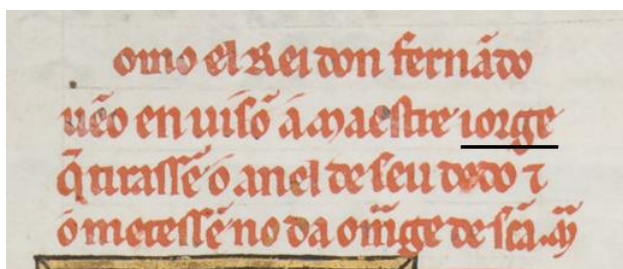 omo el Rei don fernãdo
uẽo en uisõ a maestre iorge
q̃ tirassẽ o anel de seu dedo ⁊
o metessẽ no da omãge de scã. mã